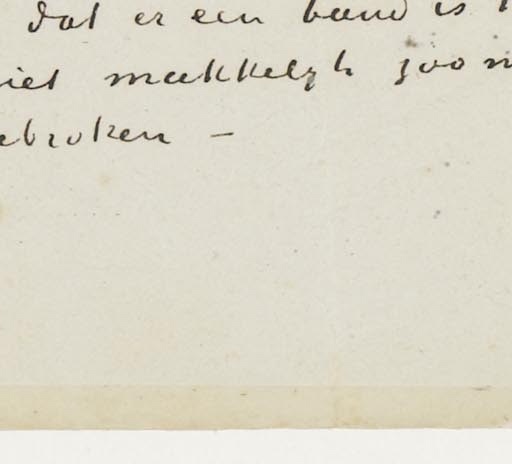 dat er een band is
niet makkelijk zoo
ebroken –